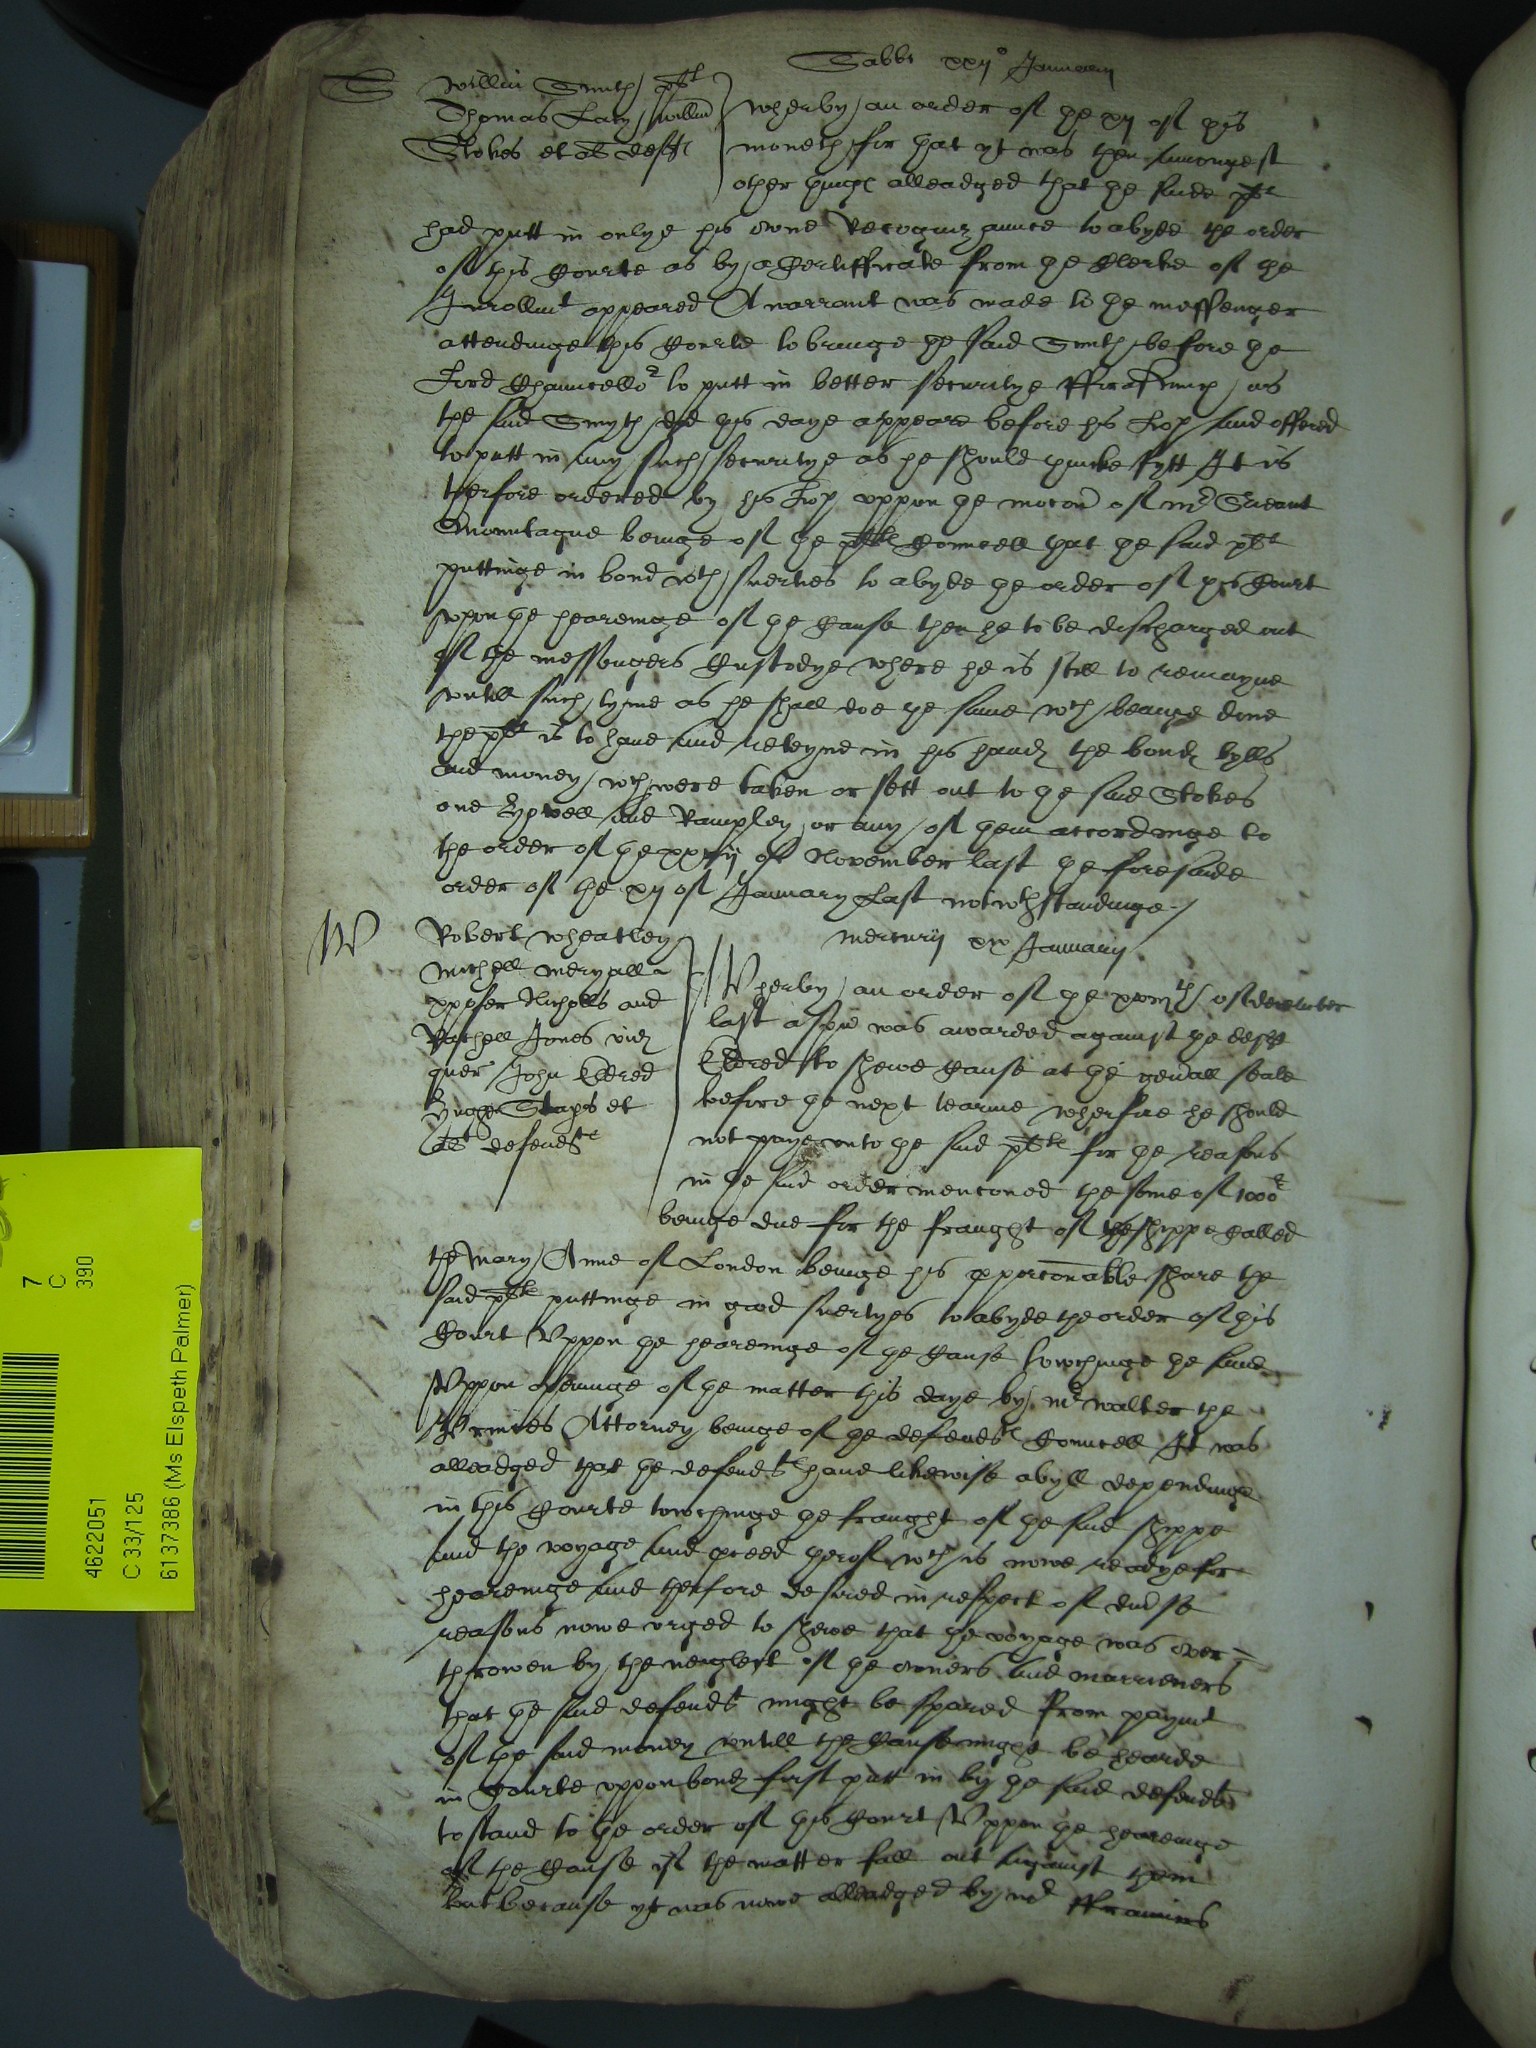 Sabbi xxij° January
S
Willm Smith plt
Thomas Lacy, Willm
Stokes et al defts
Wherby an order of the xij of this
moneth for that yt was then amongest
other thinges alleadged that the saide plt
had putt in onlye his owne Recognizaunce to abyde the order
of this Courte as by a Certifficate from the Clerke of the
Inrollmt appeared A warrant was made to the messenger
attendinge this Courte to bringe the said Smith before the
Lord Chauncellor to putt in better securitye
the said Smyth did this daye appeare before his Lop and offered
to putt in any such securitye as he should thinke fytt It is
therfore ordered by his Lop uppon the mocon of mr Serieant
Mountague beinge of the plts Councell that the said plt
puttinge in bond wth suerties to abyde the order of this Court
upon the hearinge of the Cause then he to be discharged out
of the messengers Custodye where he is still to remayne
untill such tyme as he shall doe the same wch beinge done
the plt is to have and reteyne in his handes the bondes bylls
and money wch were taken or sett out to the said Stokes
one and Rampley or any of them accordinge to
the order of the xxiij of November last the foresaide
order of the xij of January Last notwthstandinge
W
Robert Wheatley
Michell Meryall
xpofer Nicholls and
Rachell Jones vid
quer John Eldred
Hugh Stapers et
alt defendtes
Mercurij January
Wherby an order of the th of december
last a spa was awarded against the deft
Eldred to shewe Cause at the gen'all seale
before the next tearme wherfore he should
not paye unto the said plts for the reasons
in the said order menconed the some of 1000li
beinge due for the fraught of the shippe Called
the Mary Anne of London beinge his pporconable share the
said plts puttinge in good suertyes to abyde the order of this
Court Uppon the hearinge of the Cause towchinge the same
Uppon openinge of the matter this daye by mr Walter the
Princes Attorney beinge of the defendtes Councell It was
alleadged that the defendtes have likewise a byll dependinge
in this Courte towchinge the fraught of the said shippe
and the voyage and pceed therof wch is nowe readye for
hearinge and therfore desired in respect of
reasons nowe urged to shewe that the voyage was over=
throwen by the neglect of the owners and marriners
that the said defendt might be spared from paymt
of the said money untill the Cause might be hearde
in Courte uppon bond first putt in by the said defendt
to stand to the order of this Court Uppon the hearinge
of the Cause if the matter fall out against them
but because yt was nowe alleadged by mr ffrauncis
7
C
390
4622051
C 33/125
6137386 (Ms Elspeth Palmer)